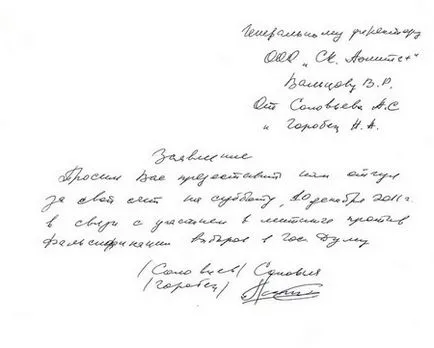 Генеральному директору
ООО "СК. Аолитет"
Вальцову В.Р.
От Соловьева А.С
и Горобец Н.А.
Заявление
Просим Вас предоставить нам отгул
за свой счет на субботу, 10 декабря 2011 г.
в связи с участием в митинге против
фальсификации выборов в Гос Думу
/Соловьев/ Соловьев
/Горобец/